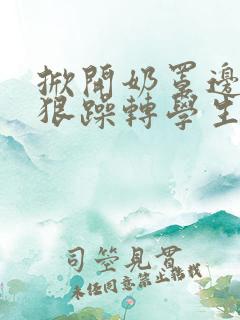 掀開奶罩邊
狠躁轉學生
司空見貫
未经同意禁止转载